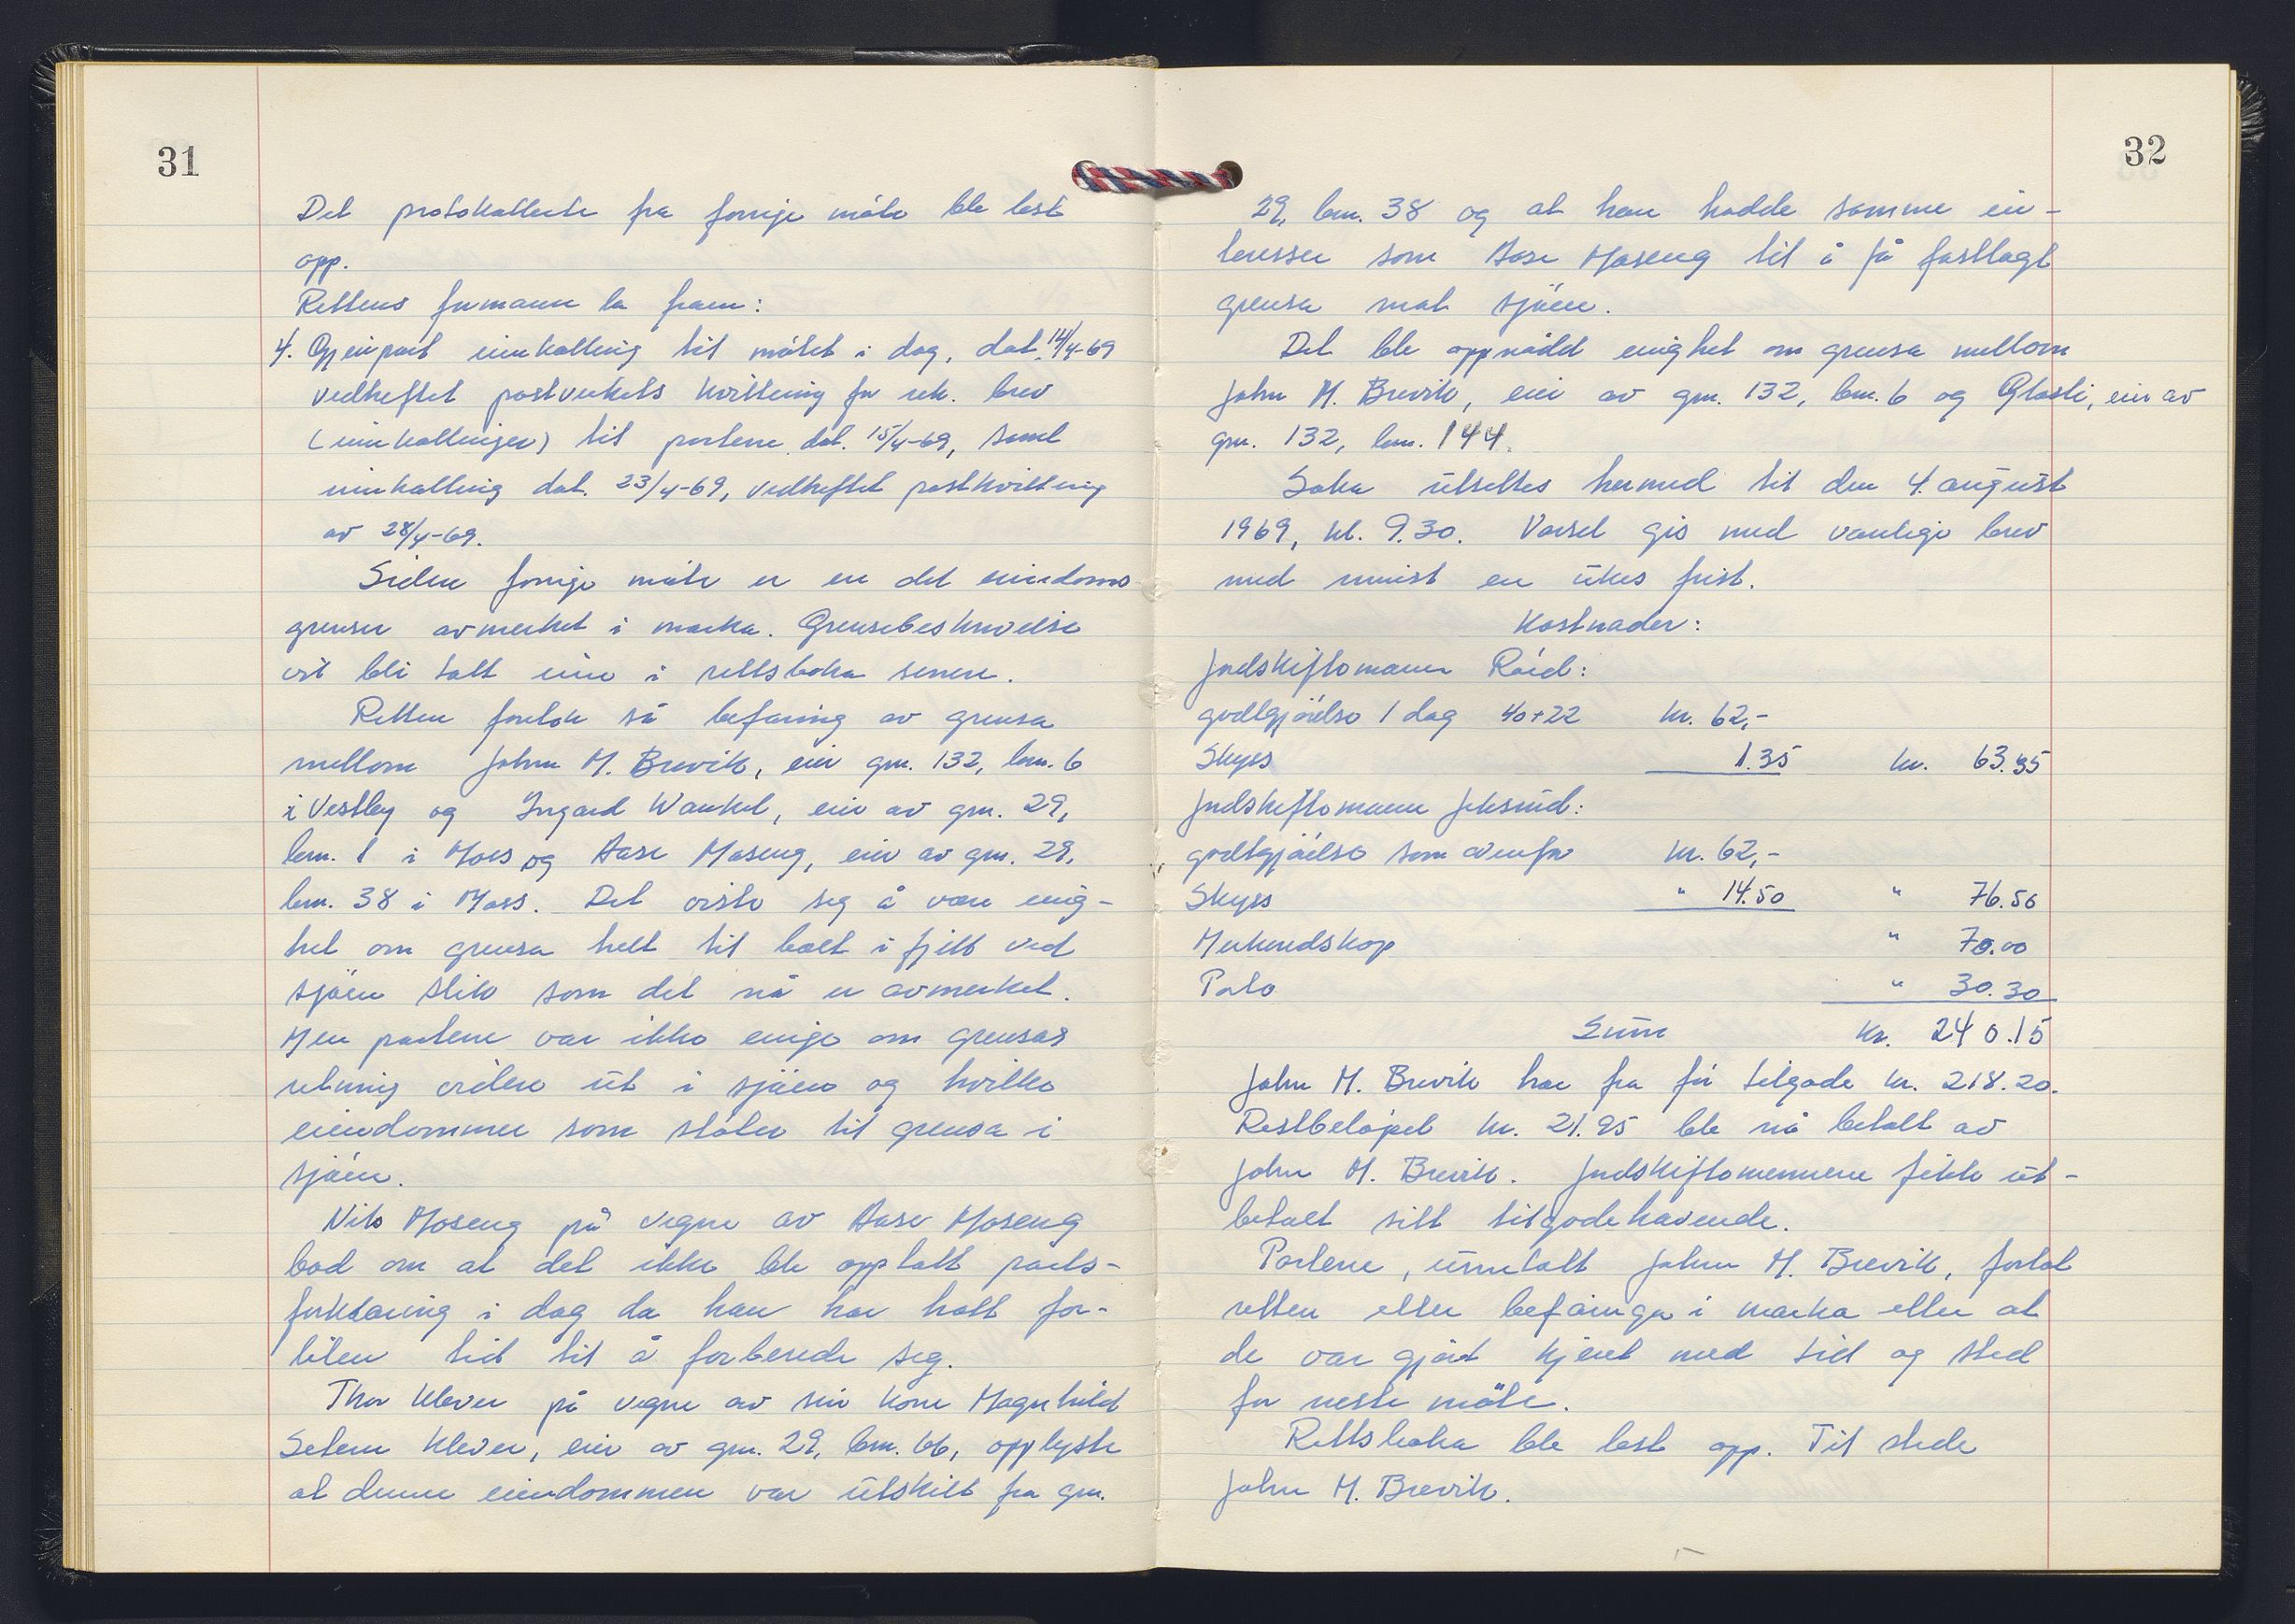 31
Det protokollerte fra forrige møte ble lest
opp.
Rettens formann la fram:
4. Gjenpart innkalling til møtet i dag, dat. 14/4-69
vedheftet postverkets kvittering for rek. brev
(innkallinger) til partene dat. 15/4-69, samt
innkalling dat. 23/4-69, vedheftet postkvittering
av 28/4-69.
Siden forrige møte er en del eiendoms-
grenser avmerket i marka. Grensebeskrivelse
vil bli tatt inn i rettsboka senere.
Retten foretok så befaring av grensa
mellom John M. Brevik, eier gnr. 132, bnr. 6
i Vestby og Ingard Wankel, eier av gnr. 29,
bnr. 1 i Moss og Aase Moseng, eier av gnr. 29,
bnr. 38 i Moss. Det viste seg å være enig-
het om grensa helt til bolt i fjell ved
sjøen slik som det nå er avmerket.
Men partene var ikke enige om grensas
retning videre ut i sjøen og hvilke
eiendommer som støter til grensa i
sjøen.
Nils Moseng på vegne av Aase Moseng
bad om at det ikke ble opptatt parts-
forklaring i dag da han har hatt for-
liten tid til å forberede seg.
Thor Klever på vegne av sin kone Magnhild
Setem Klever, eier av gnr. 29, bnr. 66, opplyste
at denne eiendommen var utskilt fra gnr.
32
29, bnr. 38 og at han hadde samme in-
teresser som Aase Moseng til å få fastlagt
grensa mot sjøen.
Det ble oppnådd enighet om grensa mellom
John M. Brevik, eier av gnr. 132, bnr. 6 og Glasli, eier av
gnr. 132, bnr. 144.
Saka utsettes hermed til den 4. august
1969, kl. 9.30. Varsel gis med vanlige brev
med minst en ukes frist.
Kostnader:
Jordskiftemann Røed:
godtgjørelse 1 dag 40+22 kr. 62,-
Skyss 1.35 kr. 63.35
Jordskiftemann Jeksrud:
godtgjørelse som ovenfor kr. 62,-
Skyss " 14.50 " 76.50
Merkeredskap " 70.00
Porto " 30.30
Sum Kr. 240.15
John M. Brevik har fra før tilgode kr. 218.20.
Restbeløpet kr. 21.95 ble nå betalt av
John M. Brevik. Jordskiftemennene fikk ut-
betalt sitt tilgodehavende.
Partene, unntatt John M. Brevik, forlot
retten etter befaringa i marka etter at
de var gjort kjent med tid og sted
for neste møte.
Rettsboka ble lest opp. Til stede
John M. Brevik.